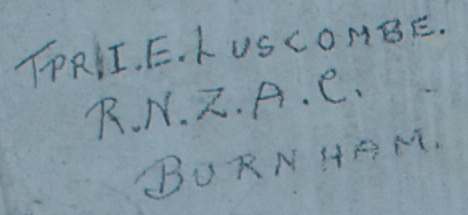 TPR I.E. LUSCOMBE.
R.N.Z.A.C.
BURNHAM.